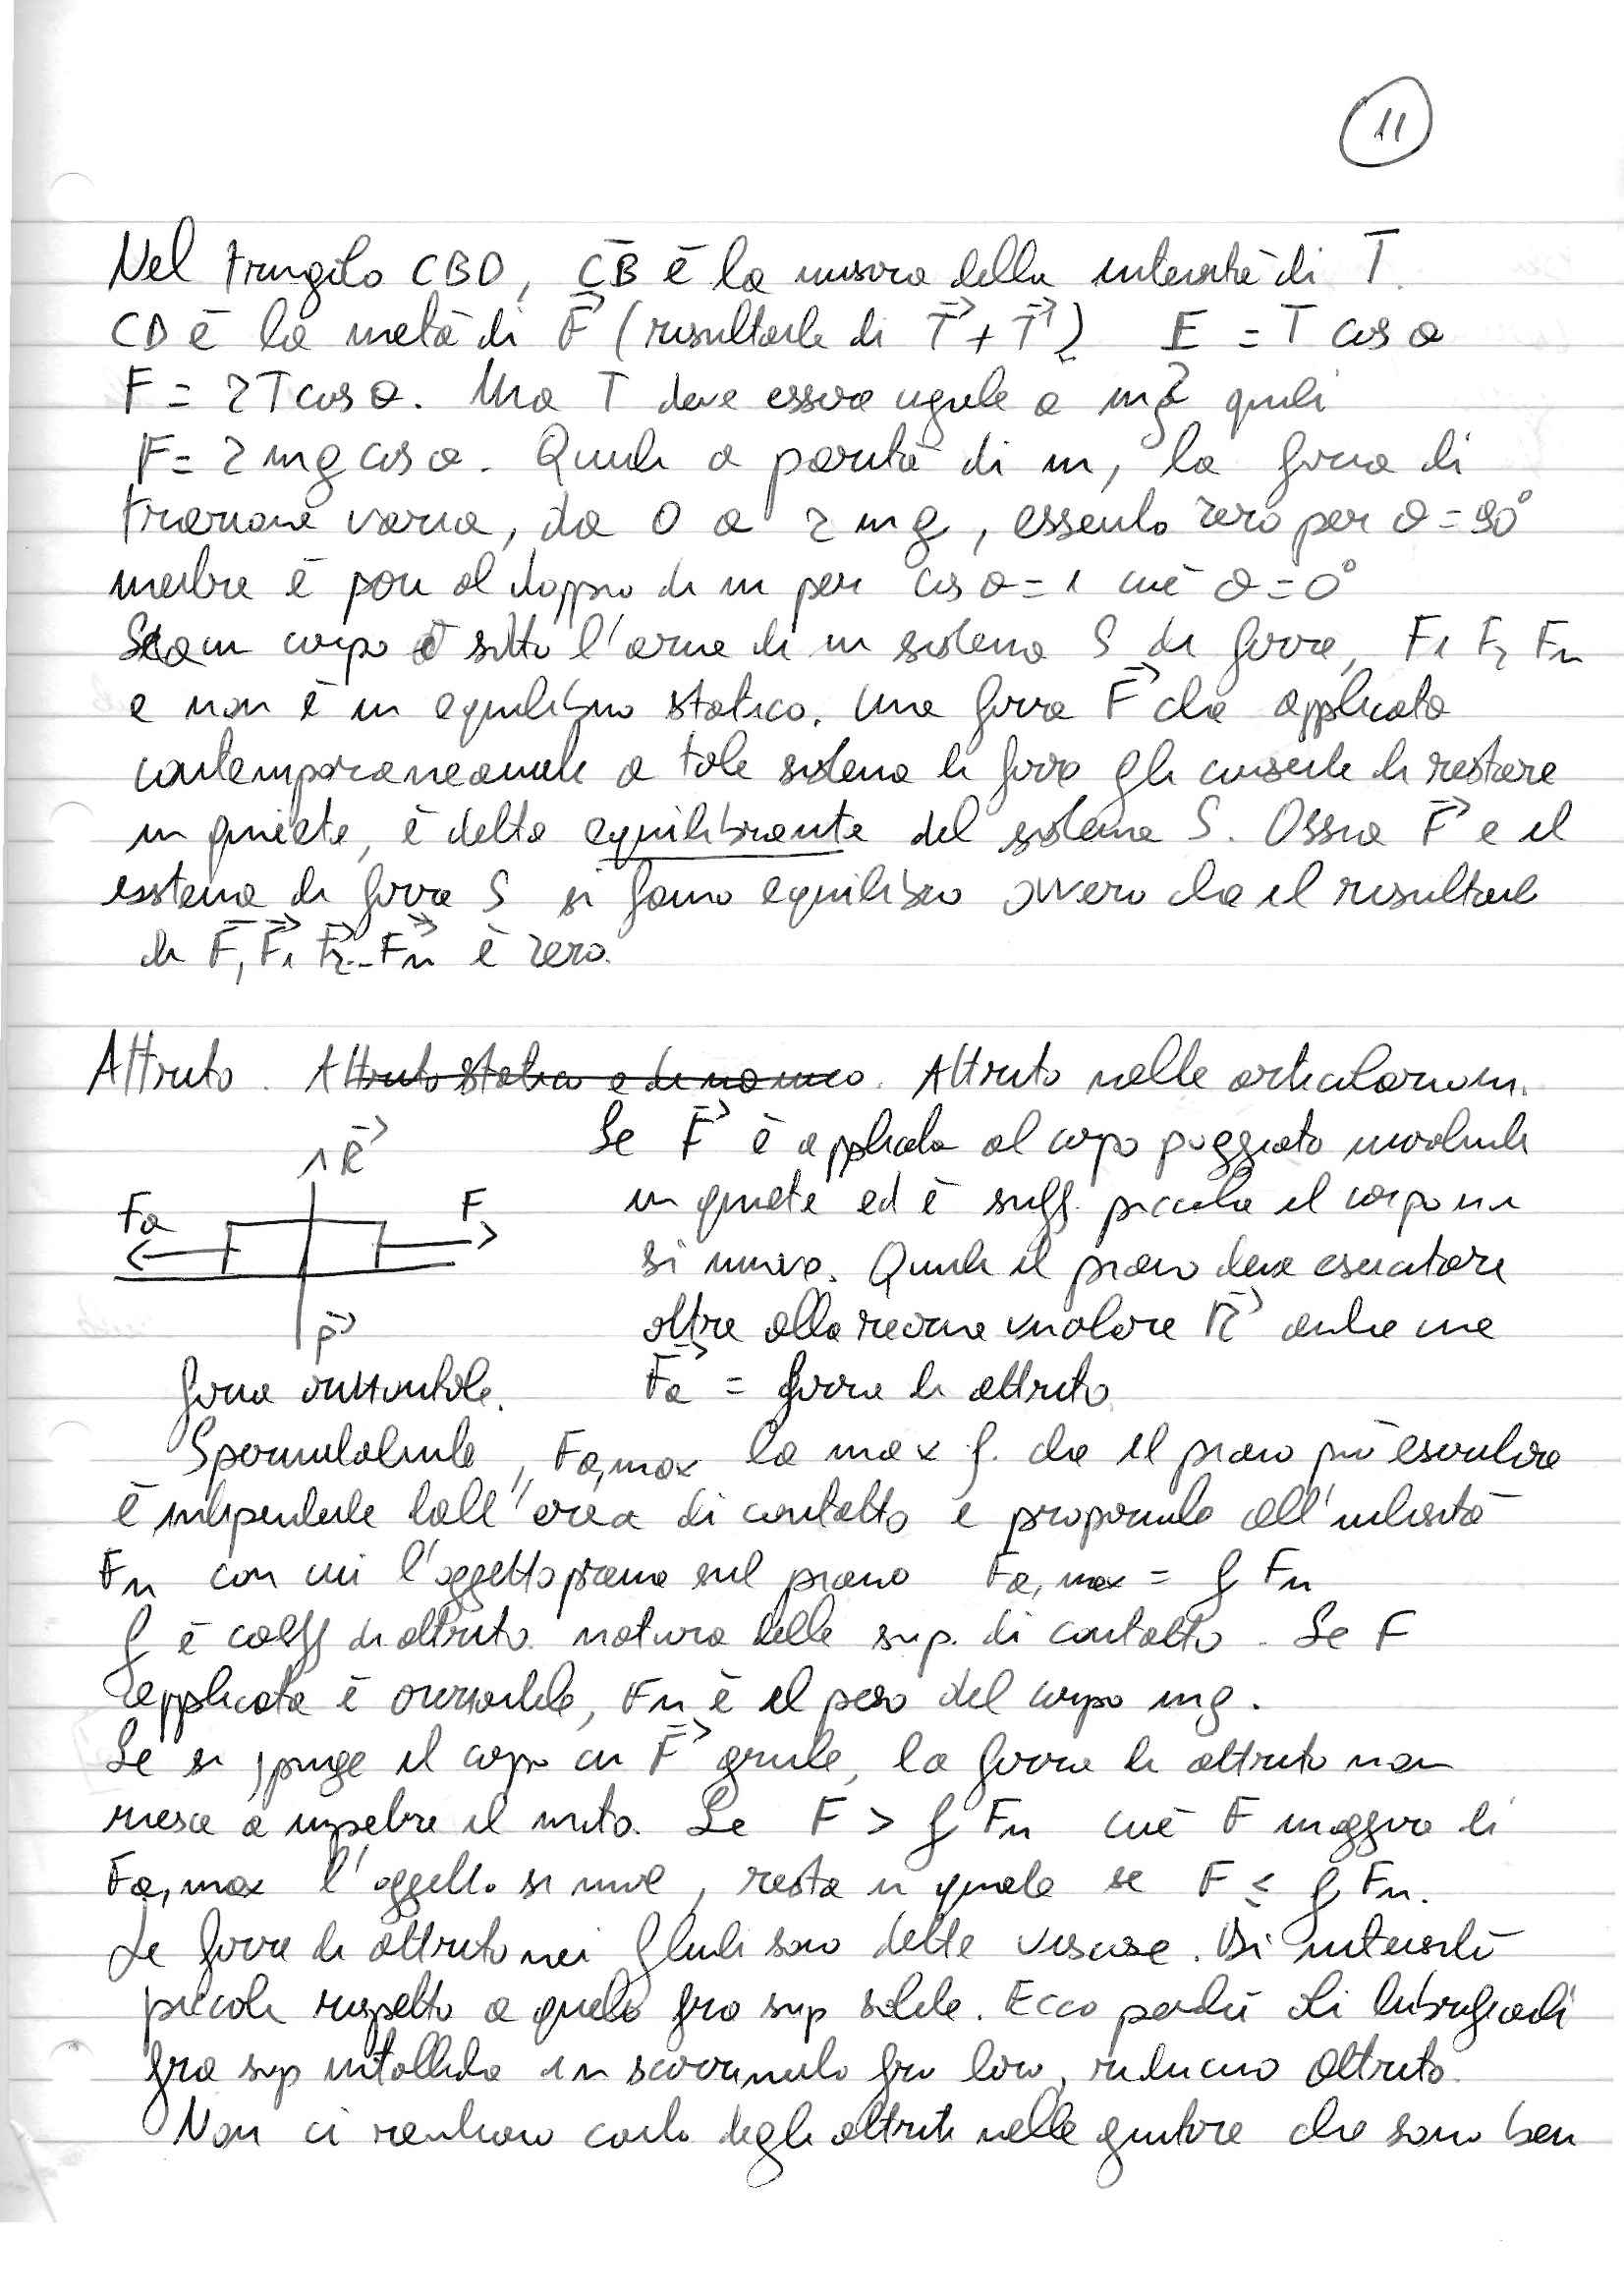 11
Nel triangolo CBD, CB è la misura della intensità di T.
CD è la metà di F (risultante di T + T') F/2 = T cos θ
F = 2T cos θ. Ma T deve essere uguale a mg quindi
F = 2 mg cos θ. Quindi a parità di m, la forza di
trazione varia, da 0 a 2 mg, essendo zero per θ = 90°
mentre è pari al doppio di m per cos θ = 1 cioè θ = 0°
Se un corpo è sotto l'azione di un sistema S di forze, F1 F2 Fn
e non è in equilibrio statico. Una forza F che applicata
contemporaneamente a tale sistema di forze gli consente di restare
in quiete, è detta equilibrante del sistema S. Ossia F e il
sistema di forze S si fanno equilibrio ovvero che il risultante
di F, F1 F2 .. Fn è zero.
Attrito. Attrito statico e dinamico. Attrito nelle articolazioni.
R
Se F è applicata al corpo poggiato inizialmente
Fa F
in quiete ed è suff. piccola il corpo non
si muove. Quindi il piano deve esercitare
P
oltre alla reazione vincolare R anche una
forza orizzontale. Fa = forza di attrito
Sperimentalmente, Fa,max la max f. che il piano può esercitare
è indipendente dall'area di contatto e proporzionale all'intensità
Fn con cui l'oggetto preme sul piano Fa,max = f Fn
f è coeff di attrito. natura delle sup. di contatto. Se F
applicata è orizzontale, Fn è il peso del corpo mg.
Se si spinge il corpo con F grande, la forza di attrito non
riesce a impedire il moto. Se F > f Fn cioè F maggiore di
Fa,max l'oggetto si muove, resta in quiete se F ≤ f Fn.
Le forze di attrito nei fluidi sono dette viscose. Di intensità
piccole rispetto a quelle fra sup solide. Ecco perché i lubrificanti
fra sup metalliche in scorrimento fra loro, riducono attrito.
Non ci rendiamo conto degli attriti nelle giunture che sono ben